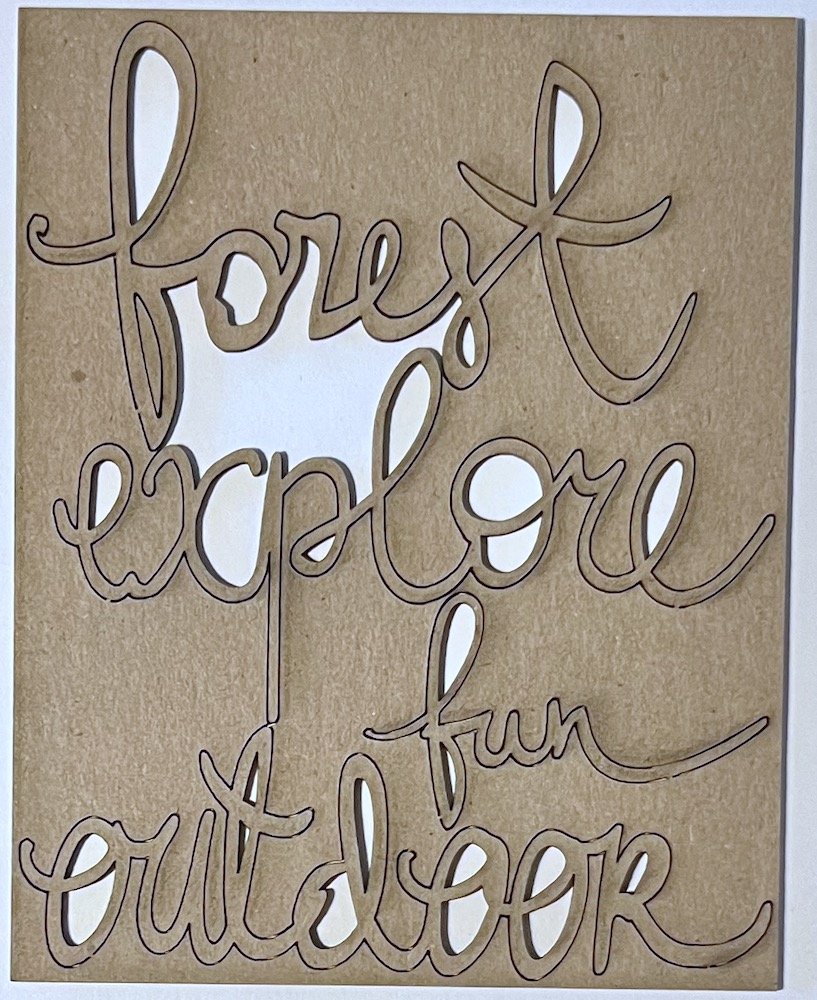 forest
explore
fun
outdoor